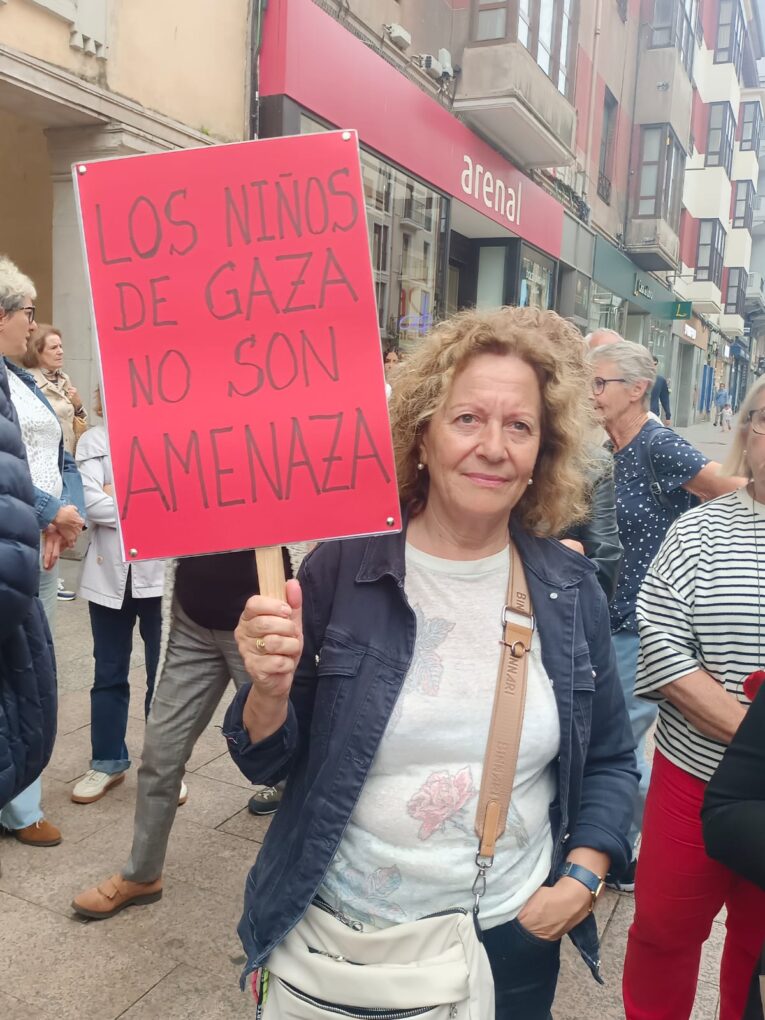 LOS NIÑOS
DE GAZA
NO SON
AMENAZA
arenal
BINNARI
BINNARI